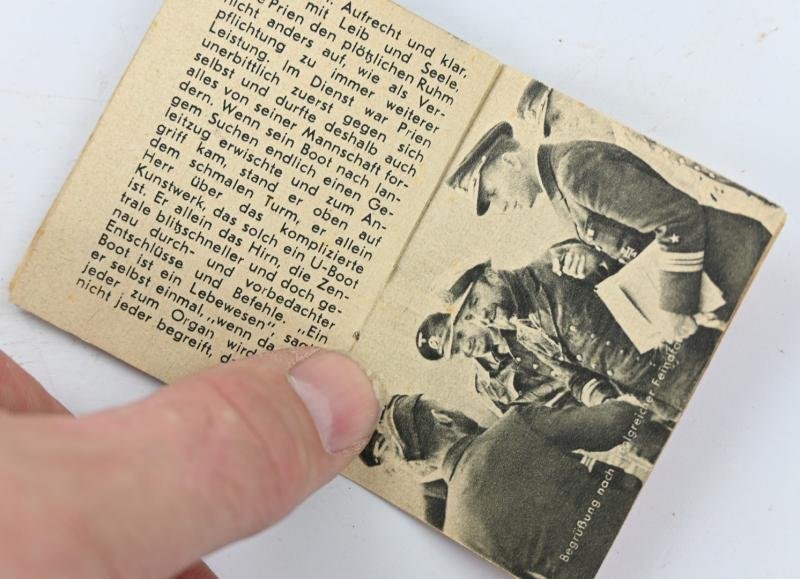 Aufrecht und klar,
mit Leib und Seele,
Prien den plötzlichen Ruhm
nicht anders auf, wie als Ver-
pflichtung zu immer weiterer
Leistung. Im Dienst war Prien
unerbittlich zuerst gegen sich
selbst und durfte deshalb auch
alles von seiner Mannschaft for-
dern. Wenn sein Boot nach lan-
gem Suchen endlich einen Ge-
leitzug erwischte und zum An-
griff kam, stand er oben auf
dem schmalen Turm, er allein
Herr über das komplizierte
Kunstwerk, das solch ein U-Boot
ist. Er allein das Hirn, die Zen-
trale blitzschneller und doch ge-
nau durch- und vorbedachter
Entschlüsse und Befehle. „Ein
Boot ist ein Lebewesen",
er selbst einmal, „wenn da
jeder zum Organ wird
nicht jeder begreift,
Begrüßung nach